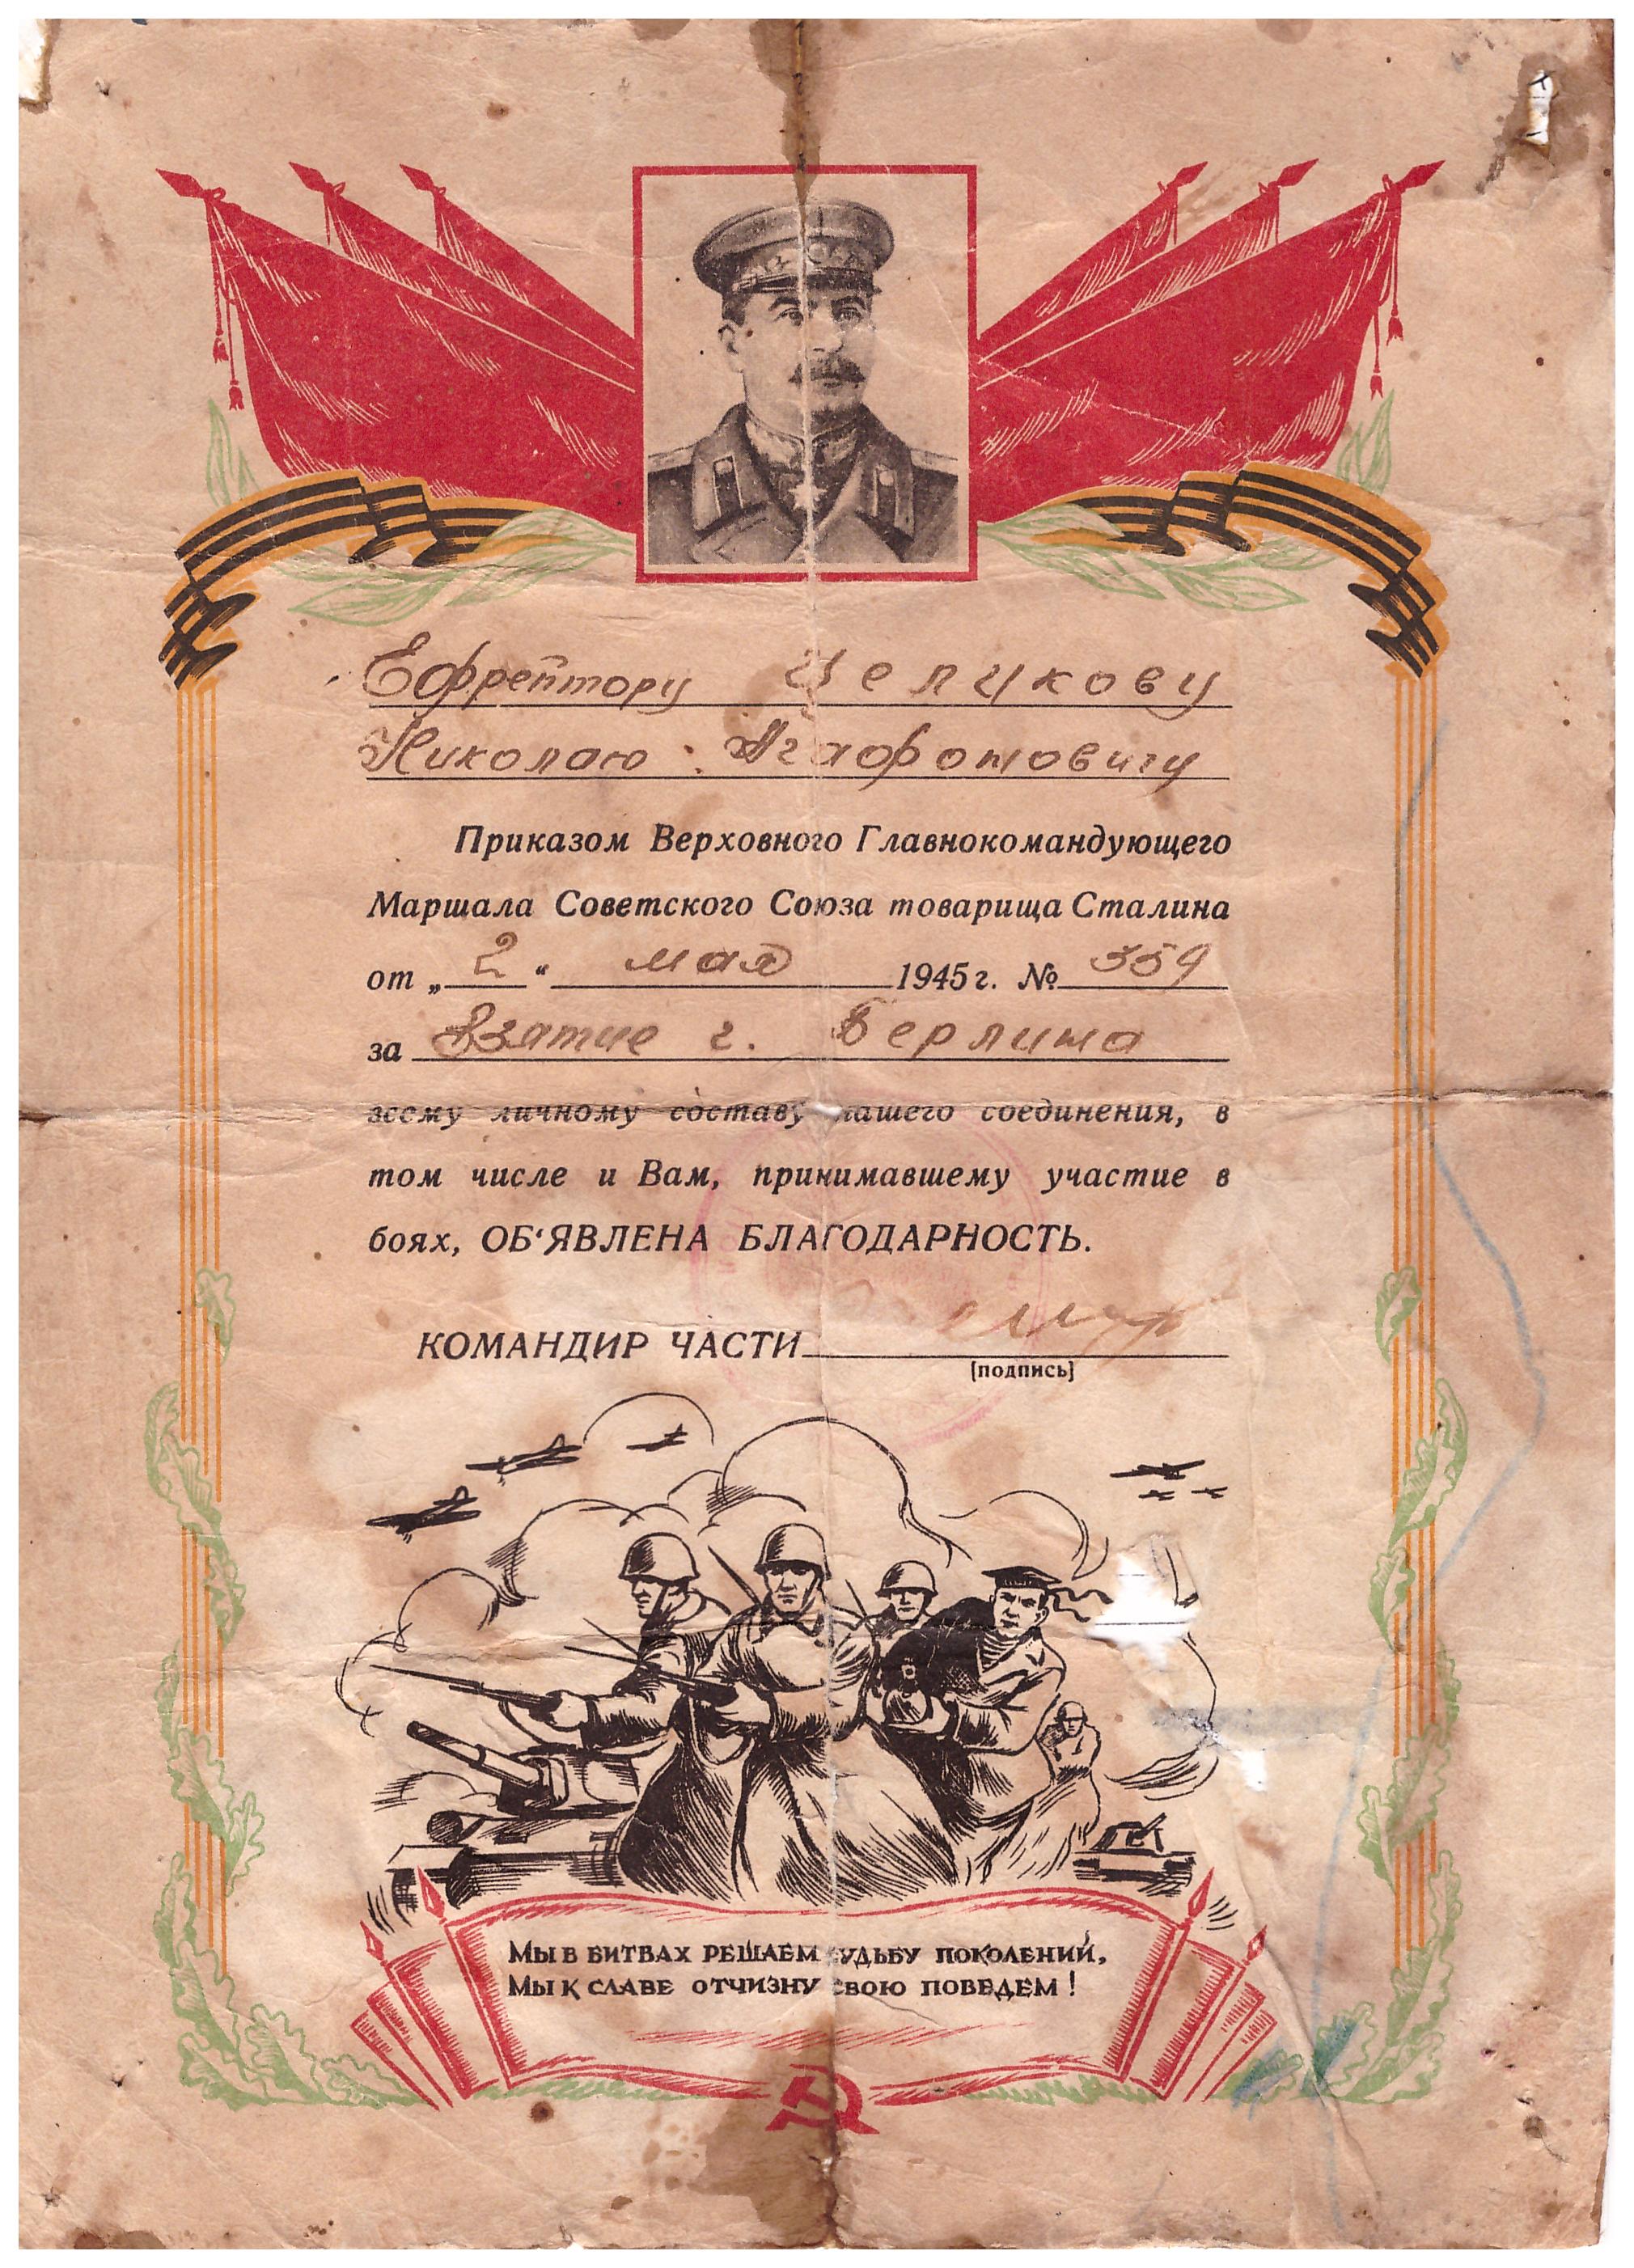 Ефрейтору Целикову
Николаю Агафоновичу
Приказом Верховного Главнокомандующего
Маршала Советского Союза товарища Сталина
от „2“ мая 1945 г. № 359
за Взятие г. Берлина
всему личному составу нашего соединения, в
том числе и Вам, принимавшему участие в
боях, ОБ‘ЯВЛЕНА БЛАГОДАРНОСТЬ.
КОМАНДИР ЧАСТИ
[подпись]
МЫ В БИТВАХ РЕШАЕМ СУДЬБУ ПОКОЛЕНИЙ,
МЫ К СЛАВЕ ОТЧИЗНУ СВОЮ ПОВЕДЕМ !